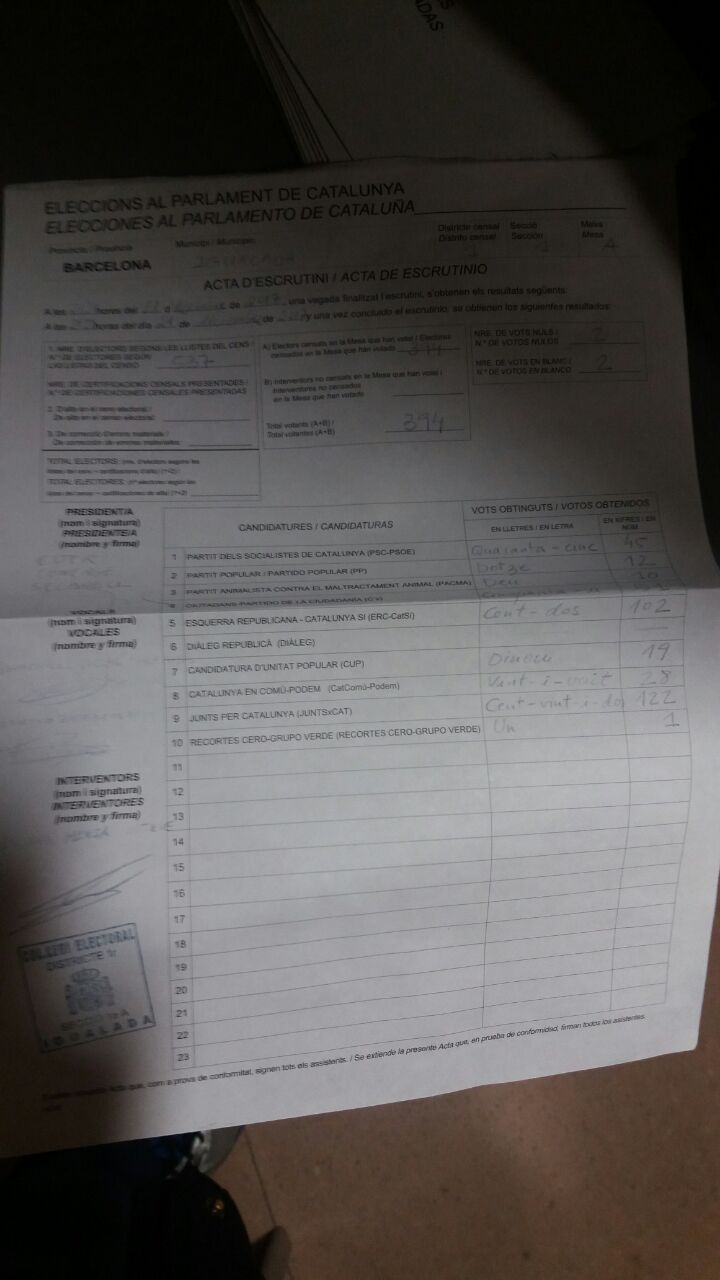 ELECCIONS AL PARLAMENT DE CATALUNYA
ELECCIONES AL PARLAMENTO DE CATALUÑA
Província / Provincia
Municipi / Municipio
Districte censal
Distrito censal
Secció
Sección
Mesa
Mesa
BARCELONA
IGUALADA
1
1
A
ACTA D'ESCRUTINI / ACTA DE ESCRUTINIO
A les hores del d de 2017, una vegada finalitzat l'escrutini, s'obtenen els resultats següents:
A las horas del día 21 de de y una vez concluido el escrutinio, se obtienen los siguientes resultados:
1. NRE. D'ELECTORS SEGONS LES LLISTES DEL CENS /
N.º DE ELECTORES SEGÚN
LAS LISTAS DEL CENSO 537
NRE. DE CERTIFICACIONS CENSALS PRESENTADES /
N.º DE CERTIFICACIONES CENSALES PRESENTADAS
2. D'alta en el cens electoral /
De alta en el censo electoral
3. De correcció d'errors materials /
De corrección de errores materiales
TOTAL ELECTORS:
TOTAL ELECTORES:
A) Electors censats en la Mesa que han votat / Electores
censados en la Mesa que han votado
B) Interventors no censats en la Mesa que han votat /
Interventores no censados
en la Mesa que han votado
Total votants (A+B) /
Total votantes (A+B) 394
NRE. DE VOTS NULS /
N.º DE VOTOS NULOS 2
NRE. DE VOTS EN BLANC /
N.º DE VOTOS EN BLANCO 2
PRESIDENT/A
(nom i signatura)
PRESIDENTE/A
(nombre y firma)
VOCALS
(nom i signatura)
VOCALES
(nombre y firma)
INTERVENTORS
(nom i signatura)
INTERVENTORES
(nombre y firma)
CANDIDATURES / CANDIDATURAS
VOTS OBTINGUTS / VOTOS OBTENIDOS
EN LLETRES / EN LETRA
EN XIFRES / EN NÚM
1 PARTIT DELS SOCIALISTES DE CATALUNYA (PSC-PSOE) Quaranta-cinc 45
2 PARTIT POPULAR / PARTIDO POPULAR (PP) Dotze 12
3 PARTIT ANIMALISTA CONTRA EL MALTRACTAMENT ANIMAL (PACMA) Deu 10
4 CIUTADANS-PARTIDO DE LA CIUDADANÍA (C's)
5 ESQUERRA REPUBLICANA - CATALUNYA SÍ (ERC-CatSí) Cent-dos 102
6 DIÀLEG REPUBLICÀ (DIÀLEG)
7 CANDIDATURA D'UNITAT POPULAR (CUP) Dinou 19
8 CATALUNYA EN COMÚ-PODEM (CatComú-Podem) Vint-i-vuit 28
9 JUNTS PER CATALUNYA (JUNTSxCAT) Cent-vint-i-dos 122
10 RECORTES CERO-GRUPO VERDE (RECORTES CERO-GRUPO VERDE) Un 1
11
12
13
14
15
16
17
18
19
20
21
22
23
COL·LEGI ELECTORAL
DISTRICTE 1r
SECCIÓ 1a A
IGUALADA
Acta que, com a prova de conformitat, signen tots els assistents. / Se extiende la presente Acta que, en prueba de conformidad, firman todos los asistentes.